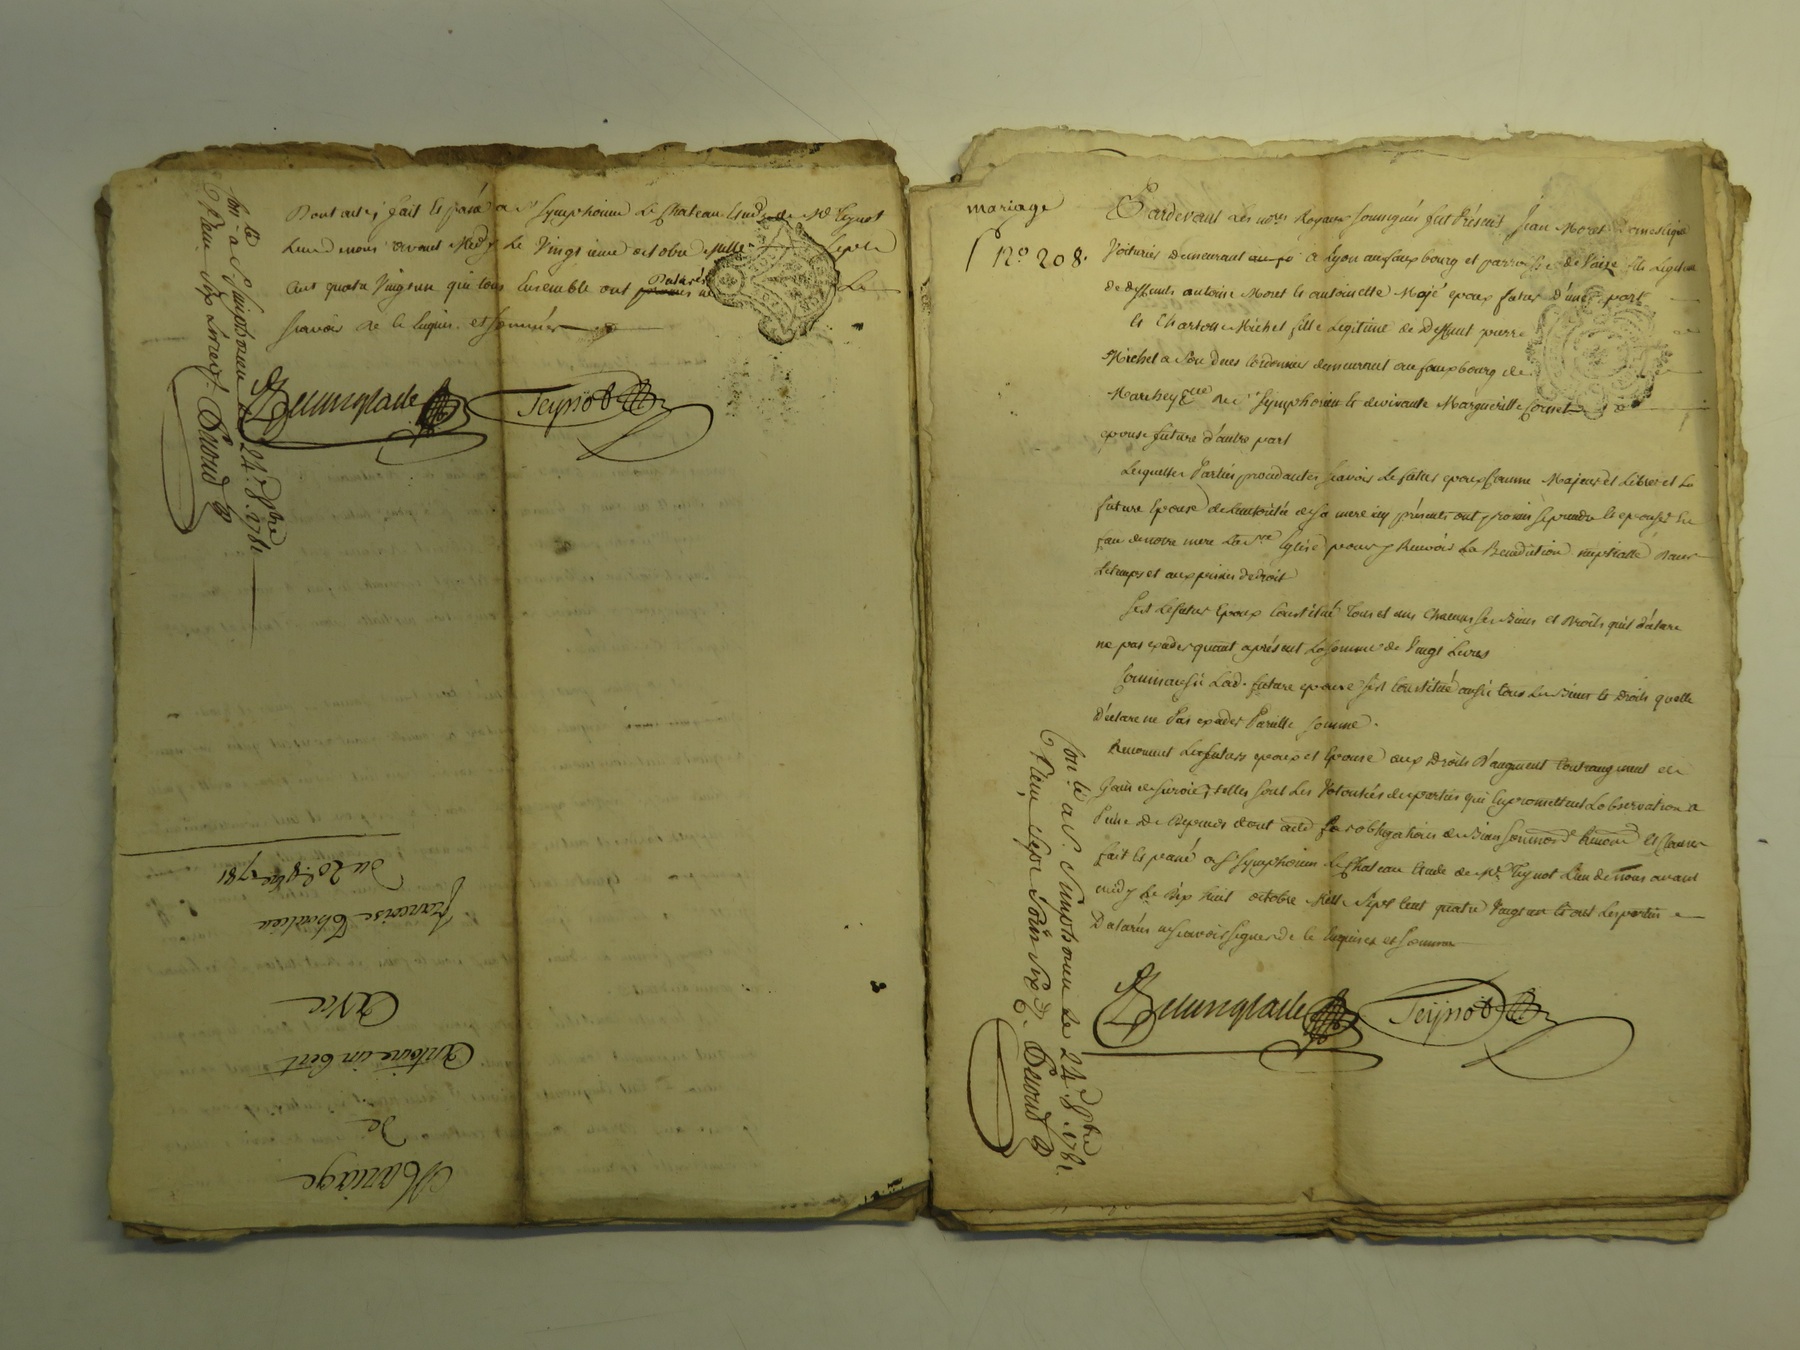 Dont acte, fait et passé a St Symphorien Le Chateau Etude de Me Teynot
L'un de nous avant Midy Le Vingtieme octobre Mille Sept
Cent quatre Vingt un qui tous Ensemble ont Déclarés ne
sçavoir de ce Enquis et sommés
Teynot
Con.lé a St. Simphorien le 24. 8bre 1781
Mariage
de
Antoine
avec
françoise
du 20. 8bre 1781
mariage
No 208.
Pardevant Les nores Royaux soussignés fut Présent Jean Moret Domestique
Voiturier demeurant a Lyon au faux bourg et parroisse de Vaize fils Legitime
de deffunts antoine Moret et antoinette Majé epoux futur d'une part
et Charlotte Michel fille Legitime de deffunt pierre
Michel a son vivant Cordonnier demeurant au fauxbourg de
de St Symphorien et de vivante Margueritte Cornet
epouse future d'autre part
Lesquelles Parties procedantes sçavoir Le futur epoux Comme Majeur et Libre et La
future Epouse de L'autorité de sa mere icy présente ont promis se prendre et epouser En
face de notre mere Ste Eglise pour y Recevoir La Benediction nuptialle Dans
Le temps et aux peines de droit
S'est Le futur Epoux Constitué Tous et uns Chacuns ses Biens et Droits qu'il déclare
ne pas exceder quant aprésent La somme de Vingt Livres
Comm'aussi Lad. future epouse s'est Constitué aussi tous ses Biens et Droits qu'elle
déclare ne Pas exceder Pareille somme.
Renoncent Les futurs epoux et Epouse aux Droits D'augment Contraugment et
Gain de survie; telles sont Les Volontés des parties qui En promettent L'observation a
Peine De Depends dont acte Par obligations de Biens soumons Renons et Clauses
fait et passé a St Symphorien Le Chateau Etude de Me Teynot L'un de Nous avant
midy Le Dix huit octobre Mille Sept Cent quatre Vingt un et ont Les parties
Déclarées ne sçavoir signer de ce Enquises et sommées
Teynot
Con.lé a St. Simphorien le 24. 8bre 1781.